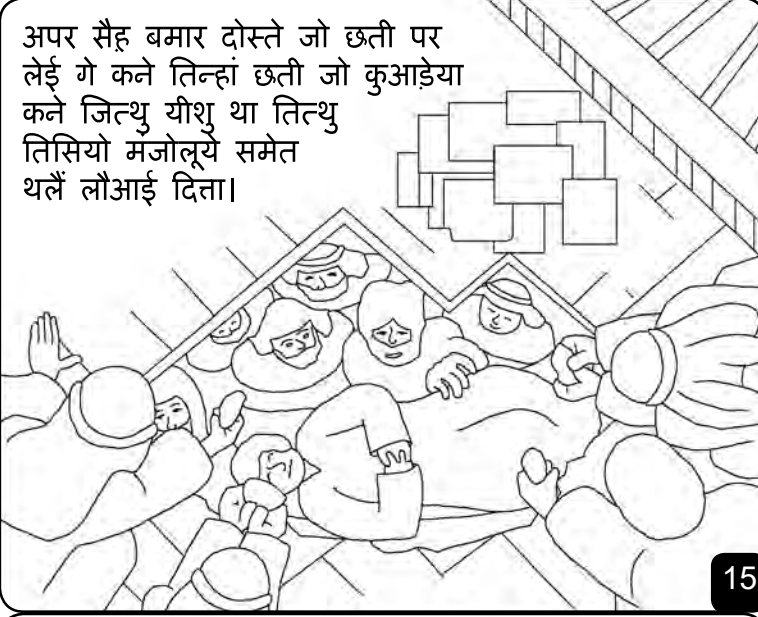 अपर सैह़ बमार दोस्ते जो छती पर
लेई गे कने तिन्हां छती जो कुआड़ेया
कने जित्थु यीशु था तित्थु
तिसियो मंजोलूये समेत
थलैं लौआई दित्ता।
15